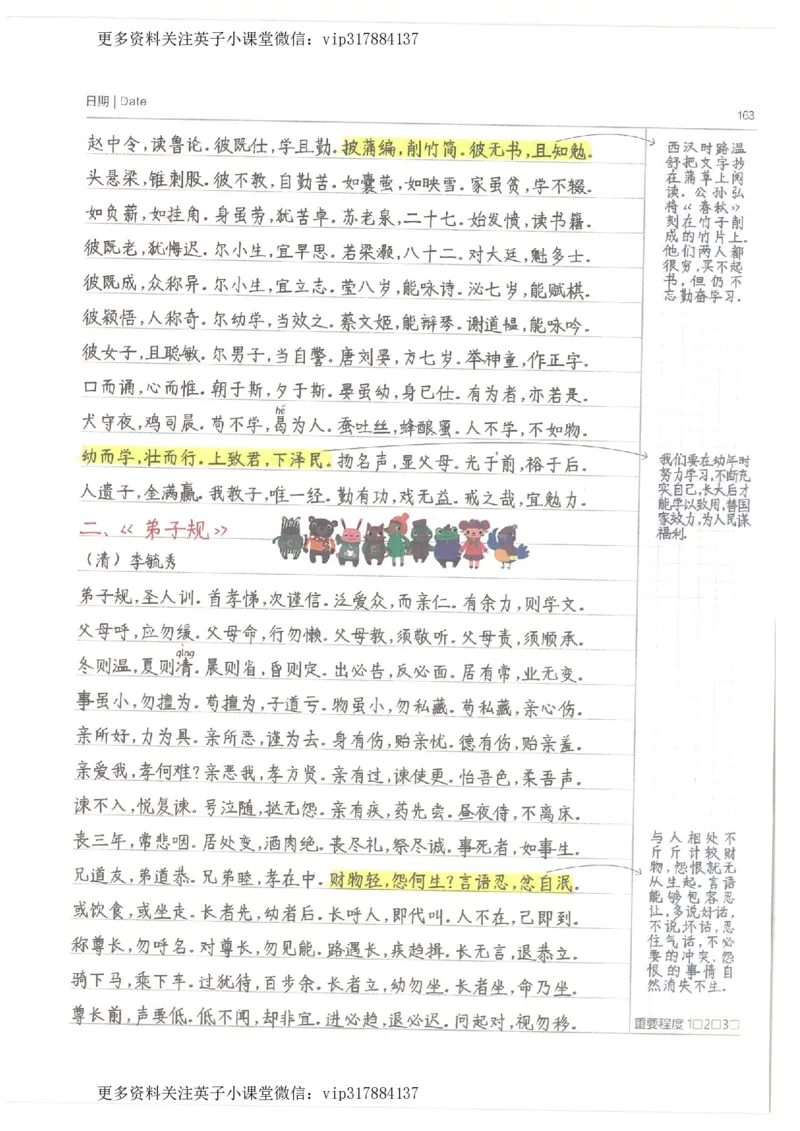 更多资料关注英子小课堂微信：vip317884137
日期 | Date
163
赵中令，读鲁论。彼既仕，学且勤。披蒲编，削竹简。彼无书，且知勉。
头悬梁，锥刺股。彼不教，自勤苦。如囊萤，如映雪。家虽贫，学不辍。
如负薪，如挂角。身虽劳，犹苦卓。苏老泉，二十七。始发愤，读书籍。
彼既老，犹悔迟。尔小生，宜早思。若梁灏，八十二。对大廷，魁多士。
彼既成，众称异。尔小生，宜立志。莹八岁，能咏诗。泌七岁，能赋棋。
彼颖悟，人称奇。尔幼学，当效之。蔡文姬，能辩琴。谢道韫，能咏吟。
彼女子，且聪敏。尔男子，当自警。唐刘晏，方七岁。举神童，作正字。
口而诵，心而惟。朝于斯，夕于斯。晏虽幼，身已仕。有为者，亦若是。
hé
犬守夜，鸡司晨。苟不学，曷为人。蚕吐丝，蜂酿蜜。人不学，不如物。
幼而学，壮而行。上致君，下泽民。扬名声，显父母。光于前，裕于后。
人遗子，金满赢。我教子，唯一经。勤有功，戏无益。戒之哉，宜勉力。
二、《弟子规》
（清）李毓秀
弟子规，圣人训。首孝悌，次谨信。泛爱众，而亲仁。有余力，则学文。
父母呼，应勿缓。父母命，行勿懒。父母教，须敬听。父母责，须顺承。
qìng
冬则温，夏则凊。晨则省，昏则定。出必告，反必面。居有常，业无变。
事虽小，勿擅为。苟擅为，子道亏。物虽小，勿私藏。苟私藏，亲心伤。
亲所好，力为具。亲所恶，谨为去。身有伤，贻亲忧。德有伤，贻亲羞。
亲爱我，孝何难？亲恶我，孝方贤。亲有过，谏使更。怡吾色，柔吾声。
谏不入，悦复谏。号泣随，挞无怨。亲有疾，药先尝。昼夜侍，不离床。
丧三年，常悲咽。居处变，酒肉绝。丧尽礼，祭尽诚。事死者，如事生。
兄道友，弟道恭。兄弟睦，孝在中。财物轻，怨何生？言语忍，忿自泯。
或饮食，或坐走。长者先，幼者后。长呼人，即代叫。人不在，己即到。
称尊长，勿呼名。对尊长，勿见能。路遇长，疾趋揖。长无言，退恭立。
骑下马，乘下车。过犹待，百步余。长者立，幼勿坐。长者坐，命乃坐。
尊长前，声要低。低不闻，却非宜。进必趋，退必迟。问起对，视勿移。
西汉时路温
舒把文字抄
在蒲草上阅
读。公孙弘
将《春秋》
刻在竹子削
成的竹片上。
他们两人都
很穷，买不起
书，但仍不
忘勤奋学习。
我们要在幼年时
努力学习，不断充
实自己，长大后才
能学以致用，替国
家效力，为人民谋
福利。
与人相处不
斤斤计较财
物，怨恨就无
从生起。言语
能够包容忍
让，多说好话，
不说坏话，忍
住气话，不必
要的冲突、怨
恨的事情自
然消失不生。
重要程度 1□2□3□
更多资料关注英子小课堂微信：vip317884137